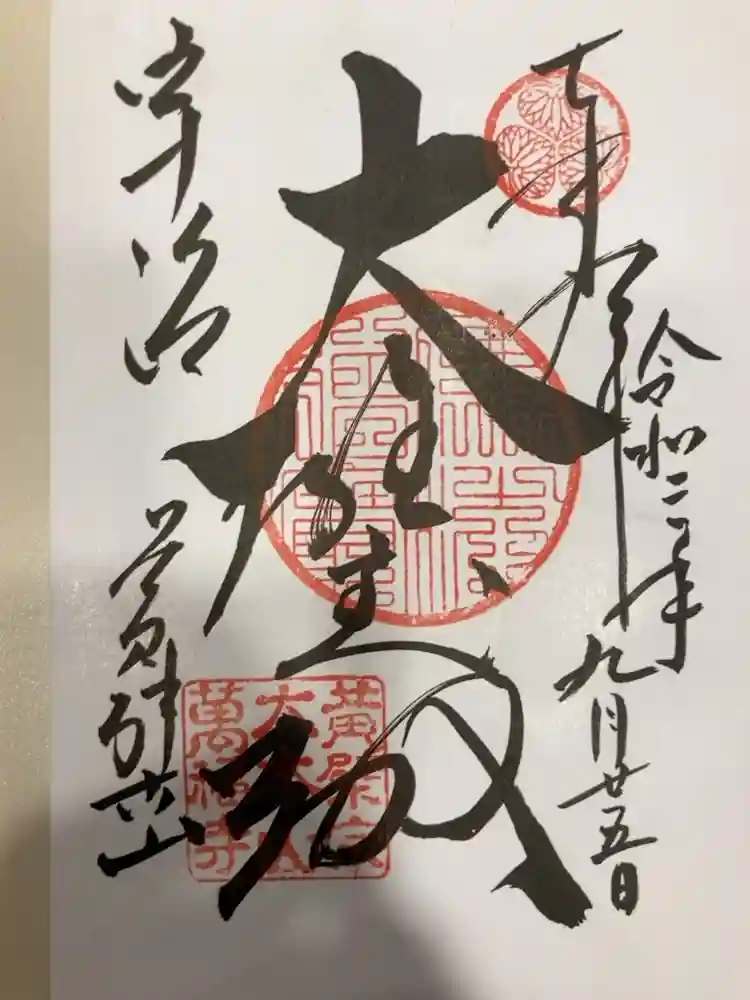 奉拝
令和二年九月廿五日
大雄寶殿
宇治
黄檗山
黄檗宗
大本山
萬福寺